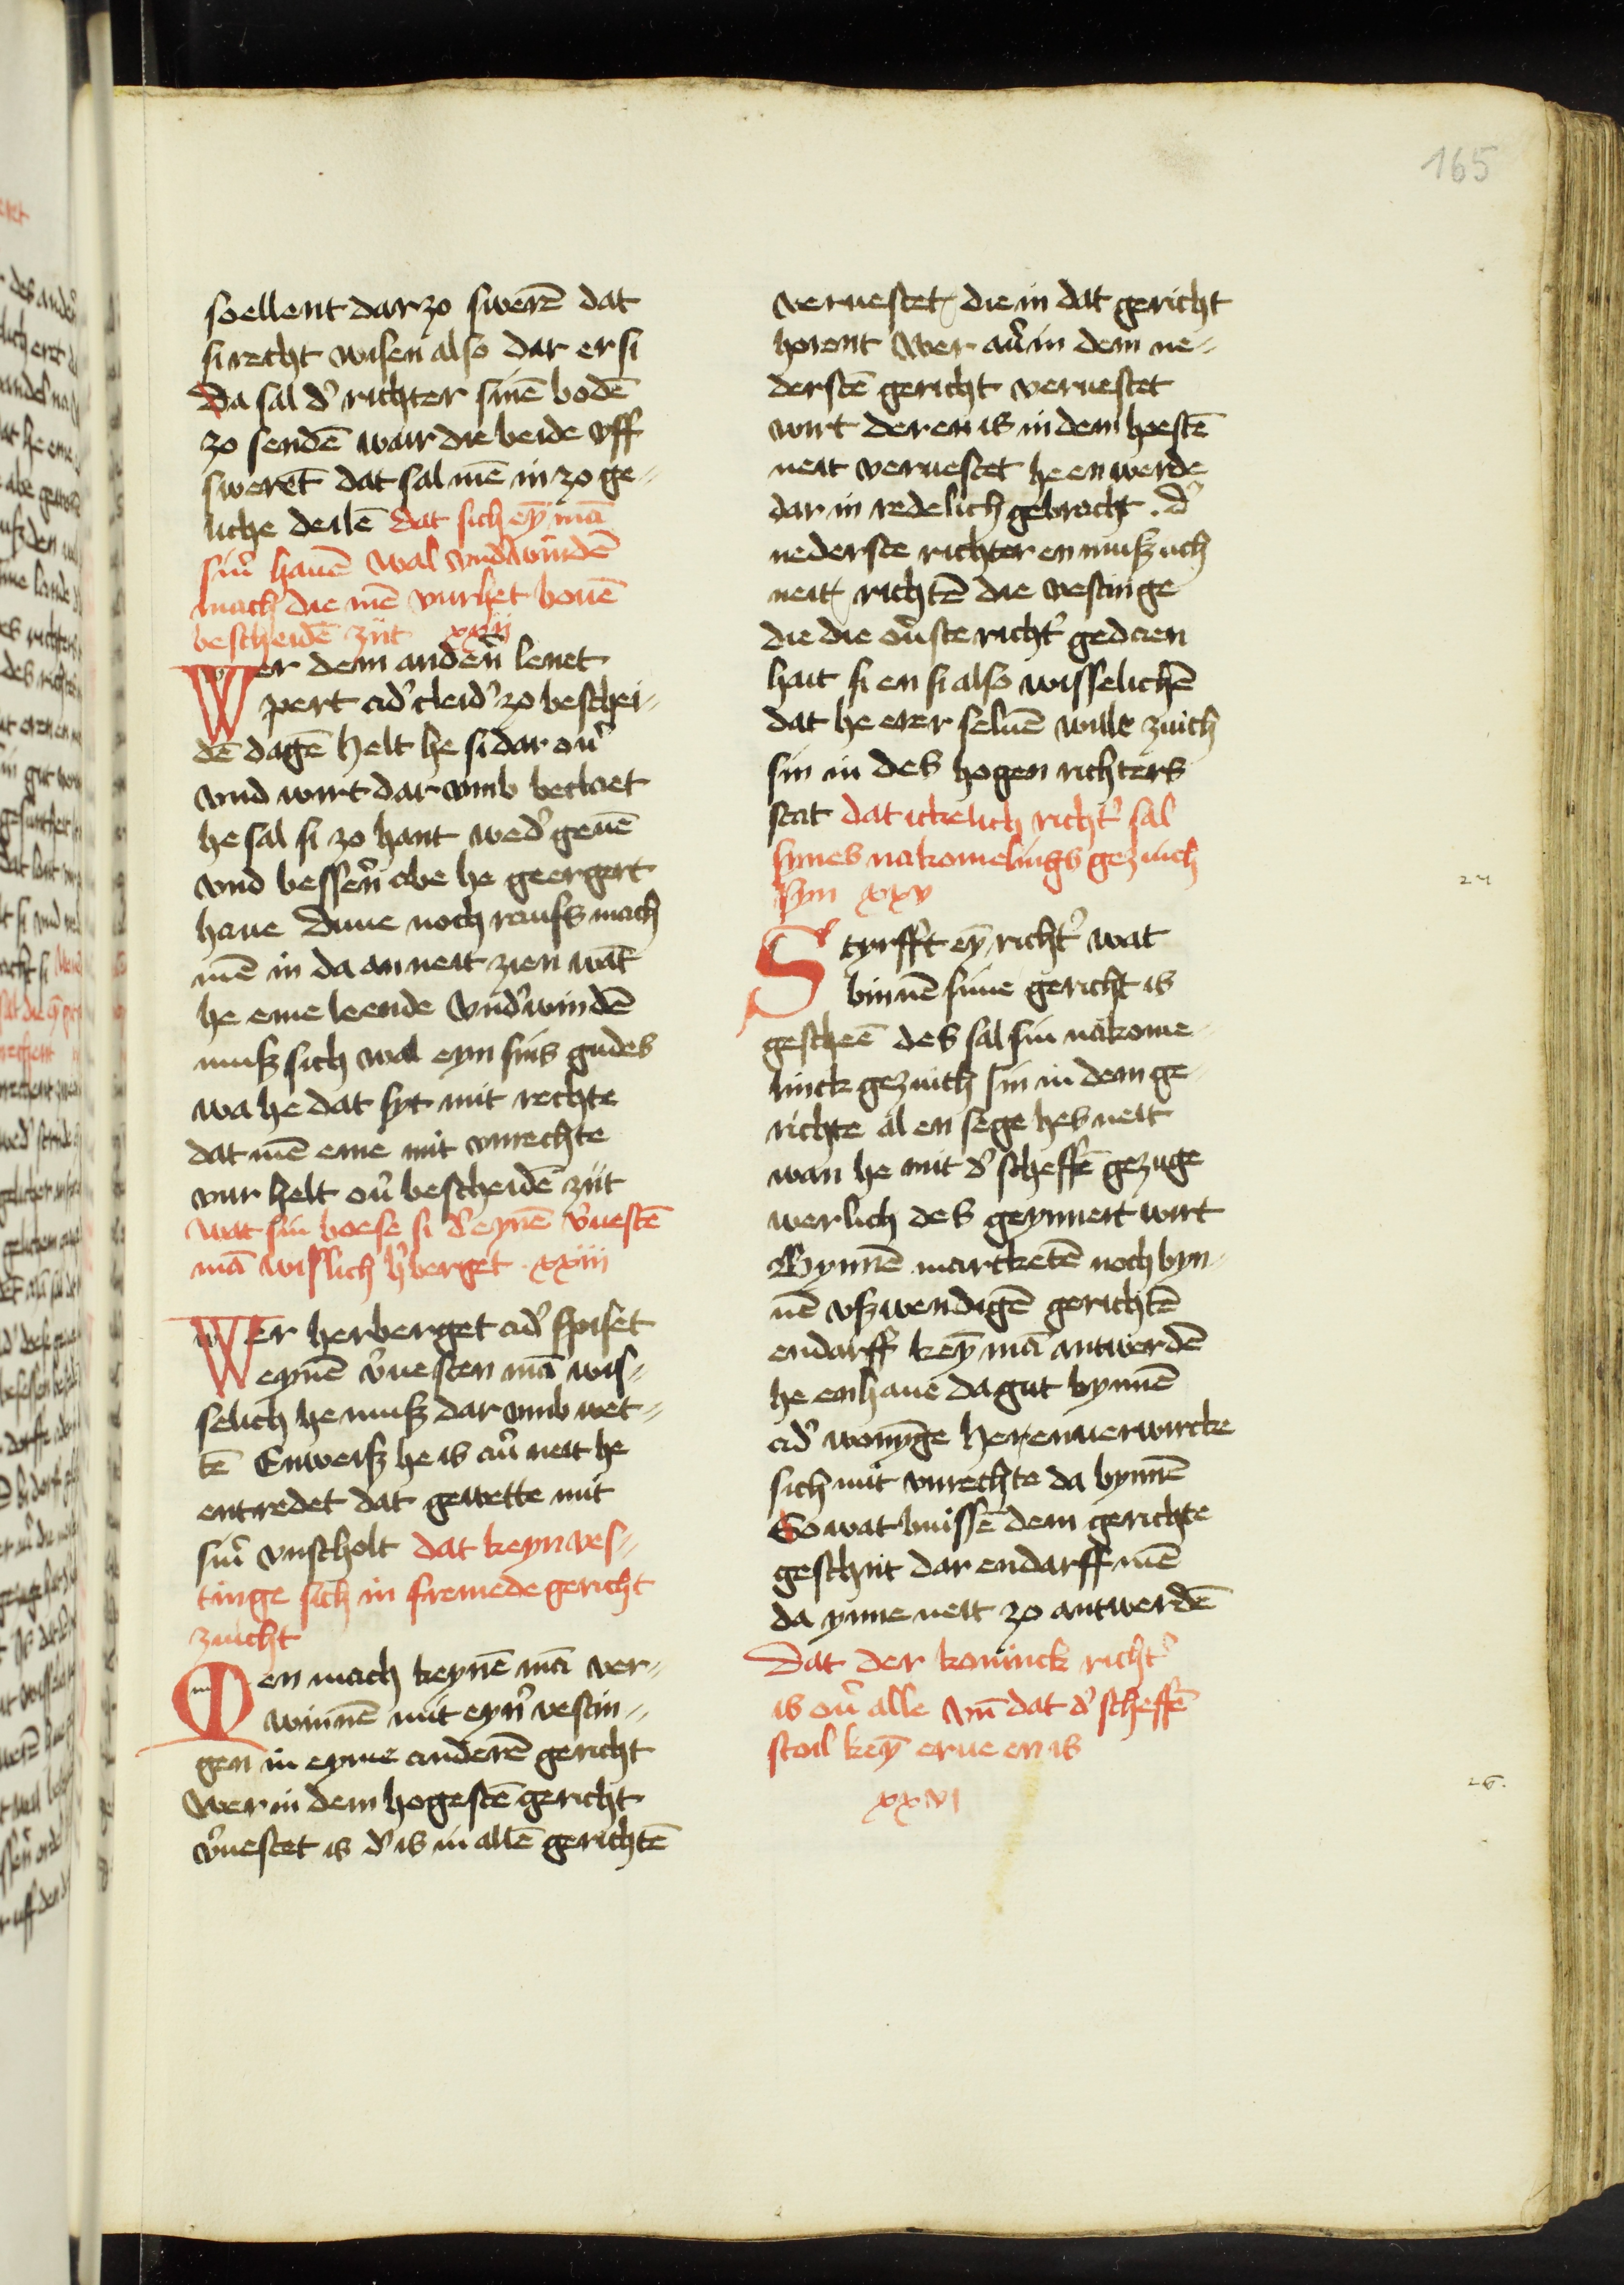 165
soellent dar zo swerē dat
si recht wisen also dar er si
Da sal d' richter sinē bodē
zo sendē war die beide vff
swerēt dat sal mē in zo ge-
liche deilē dat sich eȳ mā
sin' hauē wal vnd'windē
mach die mē vurhet bouē
bescheidē zijt xxij
Wer dem anden' lenet
pert ad' cleid' zo beschei-
dē dagē helt he si dar ou'
vnd wirt dar vmb becloet
he sal si zo hant wed' geuē
vnd bessen' abe he geergert
haue Duue noch raufs mach
mē in da an neit zien wāt
he eme leende Vnd'windē
musz sich wal eyn sins gudes
wa he dat syt mit rechte
dat mē eme mit vnrechte
vur helt ou' bescheidē zijt
wat sin boese si d' eynē v'uestē
mā wislich h'berget xxiii
Wer herberget ad' spiset
eynē v'uesten mā wis-
selich he musz dar vmb wet-
tē Enweisz he is au' neit he
entredet dat gewette mit
sin' vnscholt dat keyn ves-
tinge sich in fremede gericht
zuicht
Men mach keynē mā ver-
winnē mit eyn' vestin-
gen in eyme anderē gericht
Wer in dem hogestē gericht
v'uestet is d' is in allē gerichtē
veruestet die in dat gericht
horent Wer au' in dem ne-
derstē gericht veruestet
wirt der en is in dem hoestē
neit veruestet he en werde
dar in redelich gebracht . d'
nederste richter en musz uch
neit richtē die vestinge
die die ou'ste richt' gedaen
hait si en si also wisselichē
dat he erer seluē wille zuich
sin in des hogen richters
stat dat ickelich richt' sal
synes nakomelings gezuich
syn xxv
24
Styrfft eȳ richt' wat
binnē sime gericht is
gescheē des sal sin nakome-
linck gezuich sin in dem ge-
richte al en sege hes neit
wan he mit d' scheffē gezuge
werlich des geynnert wirt
Bynnē marcketē noch byn-
nē vszwendigē gerichtē
endarff keȳ mā antwerdē
he enhaue da gut bynnē
ad' wonȳge he en uerwircke
sich mit vnrechte da bynnē
So wat buissē dem gerichte
geschiit dar endarff mē
da ynne neit zo antwerdē
Dat der koninck richt'
is ou' alle vn̄ dat d' scheffē
stoil keȳ erue en is
xxvi
26.